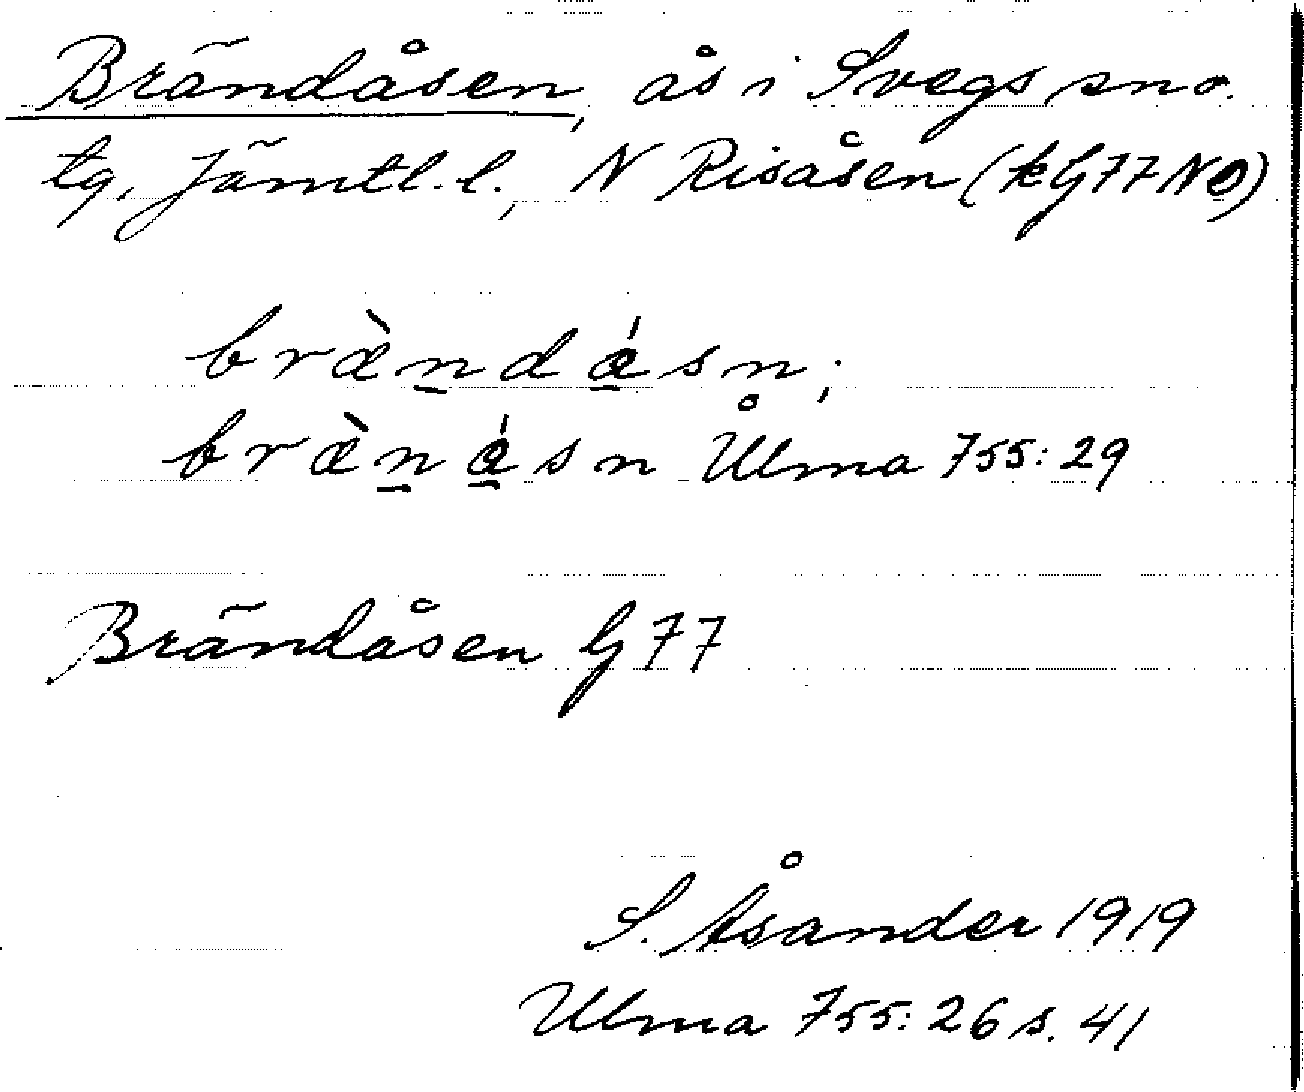 Brändåsen, ås i Svegs sns
tg, Jämtl. l., N Risåsen (kG77NO)
bræ̀ndá̲sn;
bræ̀ná̲sn Ulma 755:29
Brändåsen G77
S. Åsander 1919
Ulma 755:26 s. 41